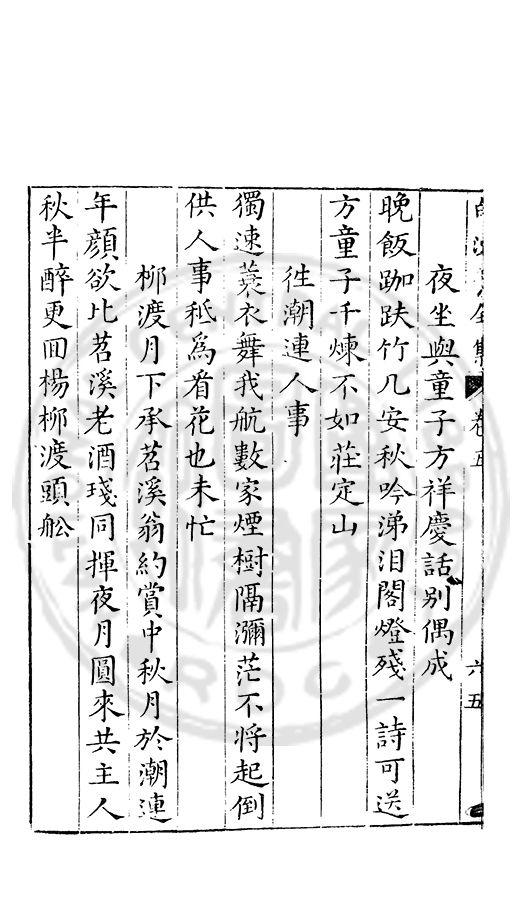 卷五
六五
夜坐與童子方祥慶話別偶成
晚飯跏趺竹几安秋吟涕泪閣燈殘一詩可送
方童子千煉不如莊定山
徃潮連人事
獨速蓑衣舞我航數家煙樹隔瀰茫不將起倒
供人事秪為看花也未忙
栁渡月下承茗溪翁約賞中秋月於潮連
年顔欲比茗溪老酒琖同揮夜月圓來共主人
秋半醉更回楊栁渡頭舩